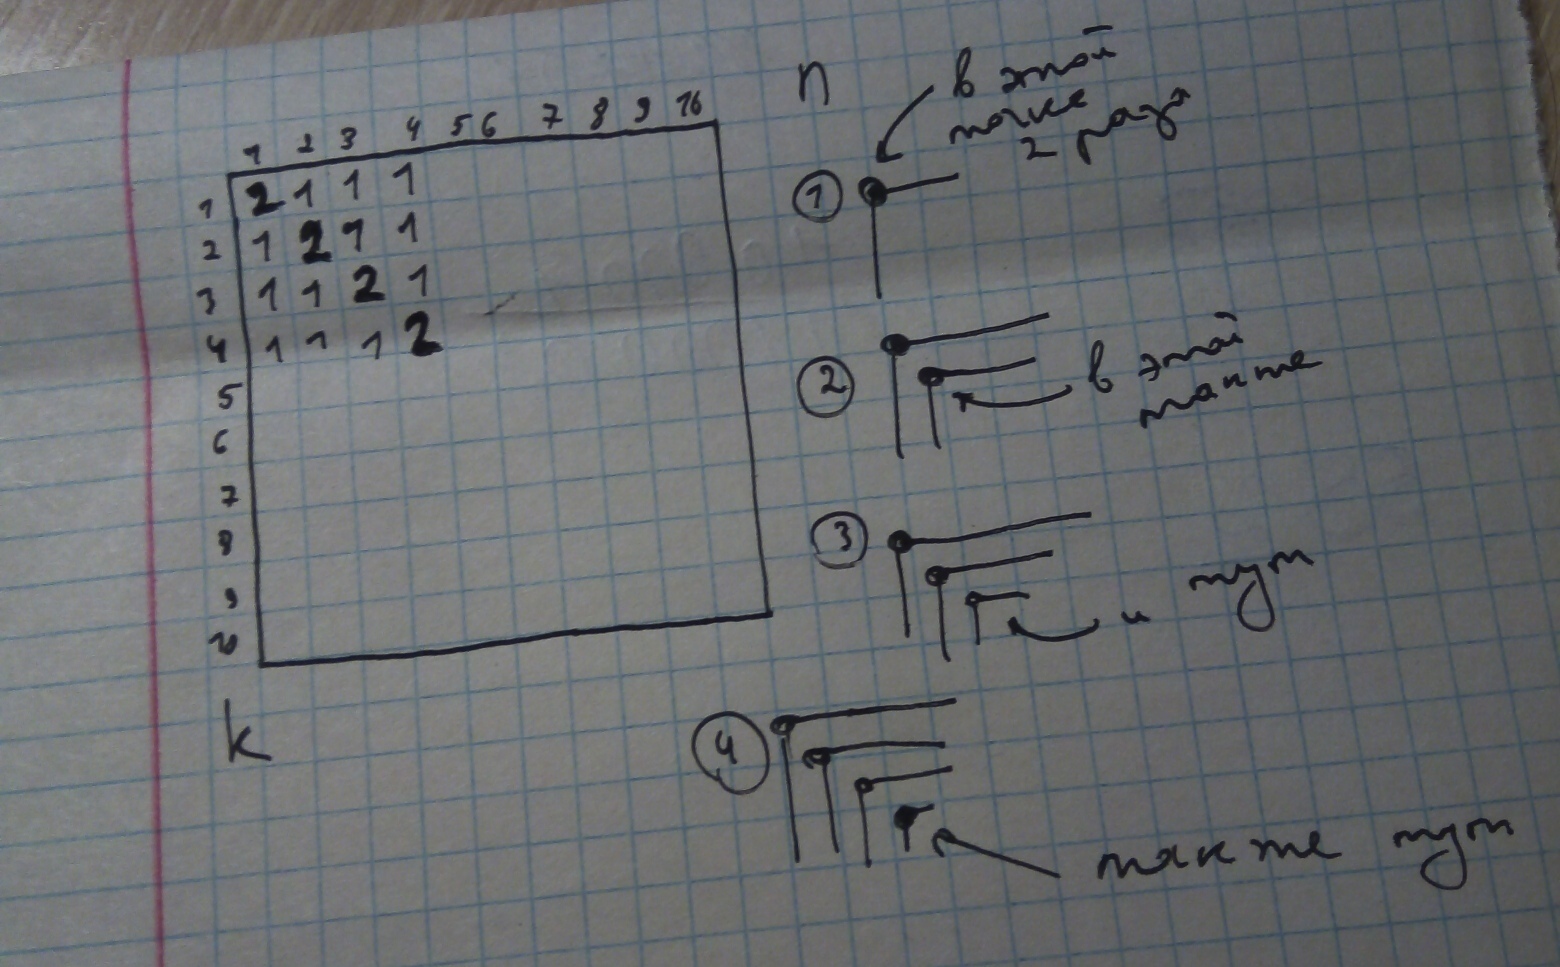 n
1 2 3 4 5 6 7 8 9 10
1 2 1 1 1
2 1 2 1 1
3 1 1 2 1
4 1 1 1 2
5
6
7
8
9
10
k
1
в этой
точке
2 раза
2
в этой
также
3
и тут
4
также тут